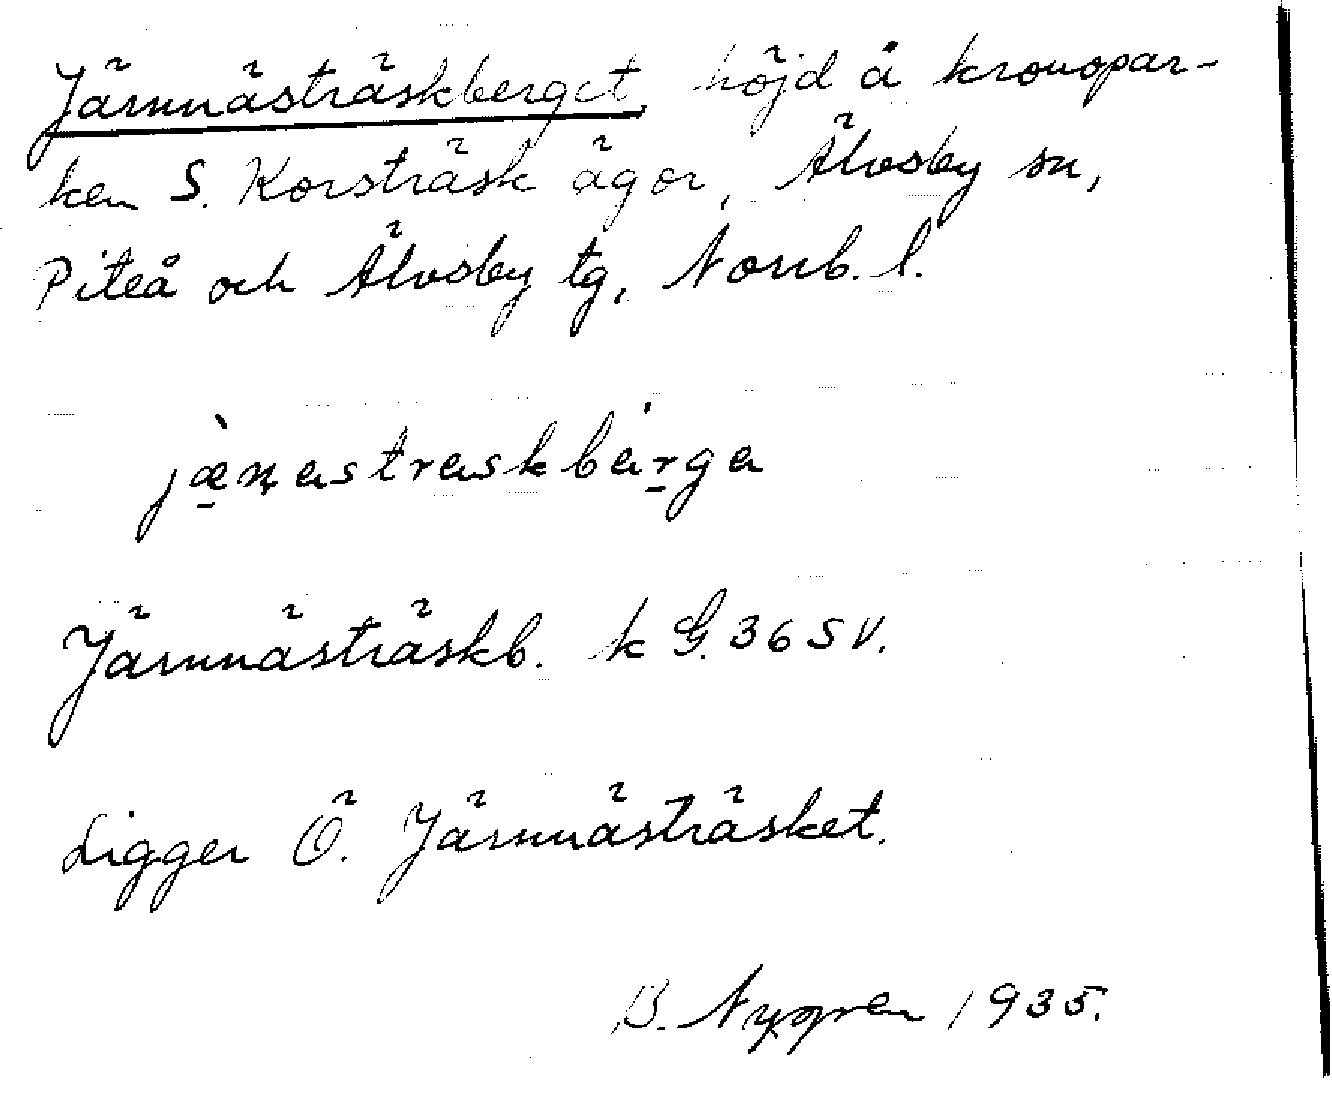 Järnnästräskberget, höjd å kronopar-
ken S. Korsträsk ägor, Älvsby sn,
Piteå och Älvsby tg, Norrb. l.
jæ̀n̨astraskbár̠ga
Järnnästräskb. k G. 36 SV.
Ligger Ö. Järnnästräsket.
B. Nygren 1935.